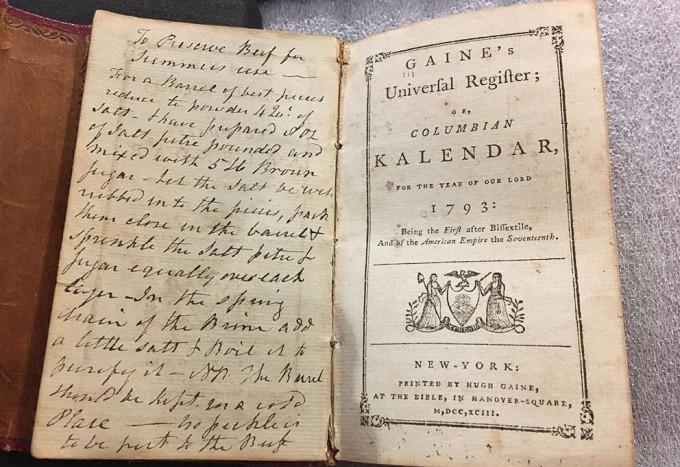 To Preserve Beef for
Summer use —
For a Barrel of best pieces
reduce to powder 4 Qts. of
Salt - have prepared 8 oz
of Salt petre pounded and
mixed with 5 lb Brown
Sugar - Let the Salt be well
rubbed into the pieces, pack
them close in the barrel &
sprinkle the Salt petre &
Sugar equally over each
layer - In the spring
drain of the Brine add
a little Salt & Boil it to
purify it - NB The Barrel
should be kept in a cold
Place — no pickle is
to be put to the Beef
GAINE's
Univerſal Regiſter;
OR,
COLUMBIAN
KALENDAR,
FOR THE YEAR OF OUR LORD
1793:
Being the Firſt after Biſſextile,
And of the American Empire the Seventeenth.
NEW-YORK:
PRINTED BY HUGH GAINE,
AT THE BIBLE, IN HANOVER-SQUARE,
M,DCC,XCIII.